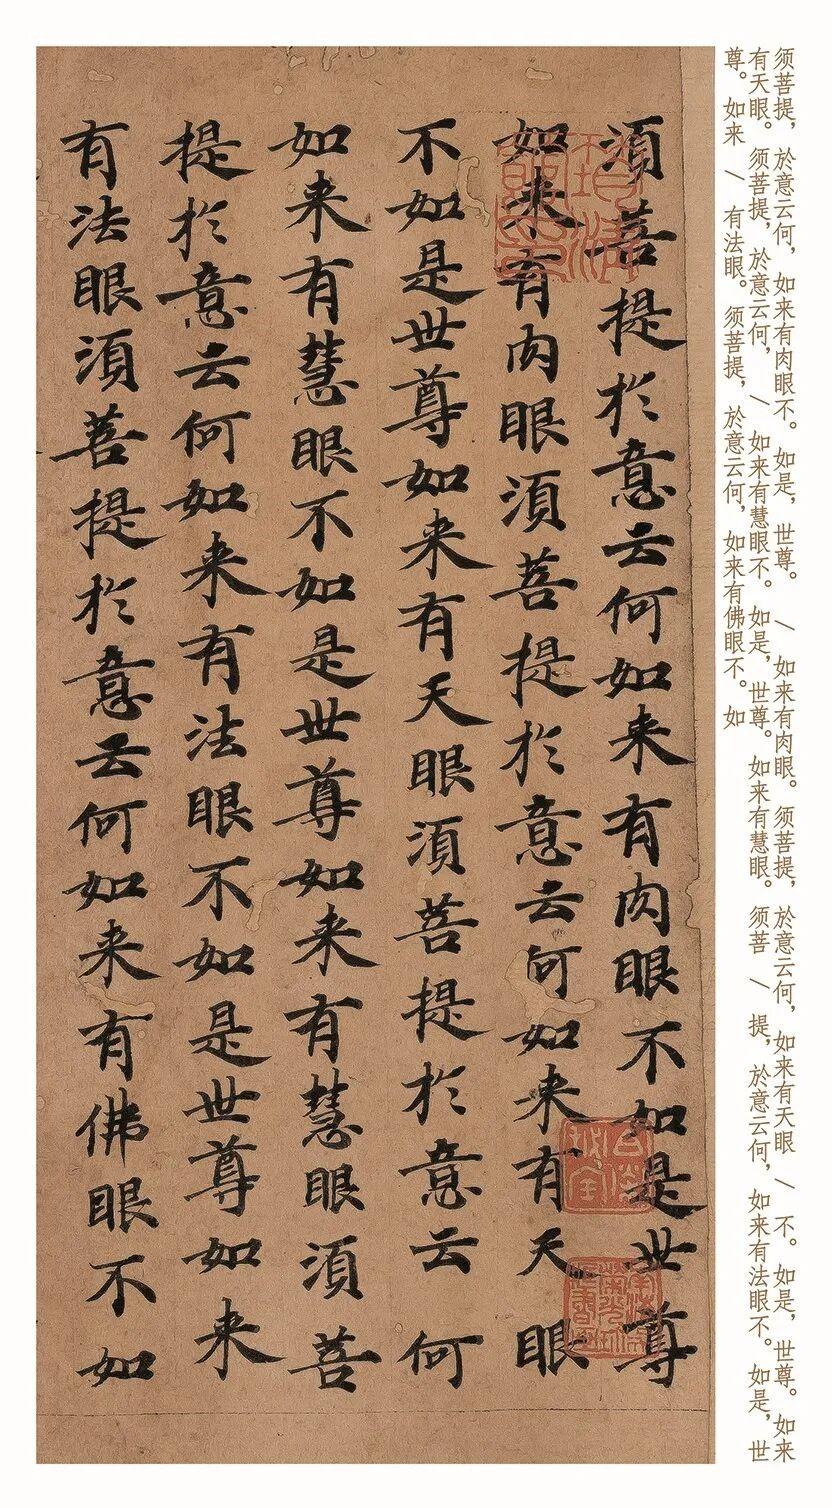 须菩提，於意云何，如来有肉眼不。如是，世尊。/如来有肉眼。须菩提，於意云何，如来有天眼/不。如是，世尊。如来
有天眼。须菩提，於意云何，/如来有慧眼不。如是，世尊。如来有慧眼。须菩/提，於意云何，如来有法眼不。如是，世
尊。如来/有法眼。须菩提，於意云何，如来有佛眼不。如
須菩提於意云何如来有肉眼不如是世尊
如来有肉眼須菩提於意云何如来有天眼
不如是世尊如来有天眼須菩提於意云何
如来有慧眼不如是世尊如来有慧眼須菩
提於意云何如来有法眼不如是世尊如来
有法眼須菩提於意云何如来有佛眼不如